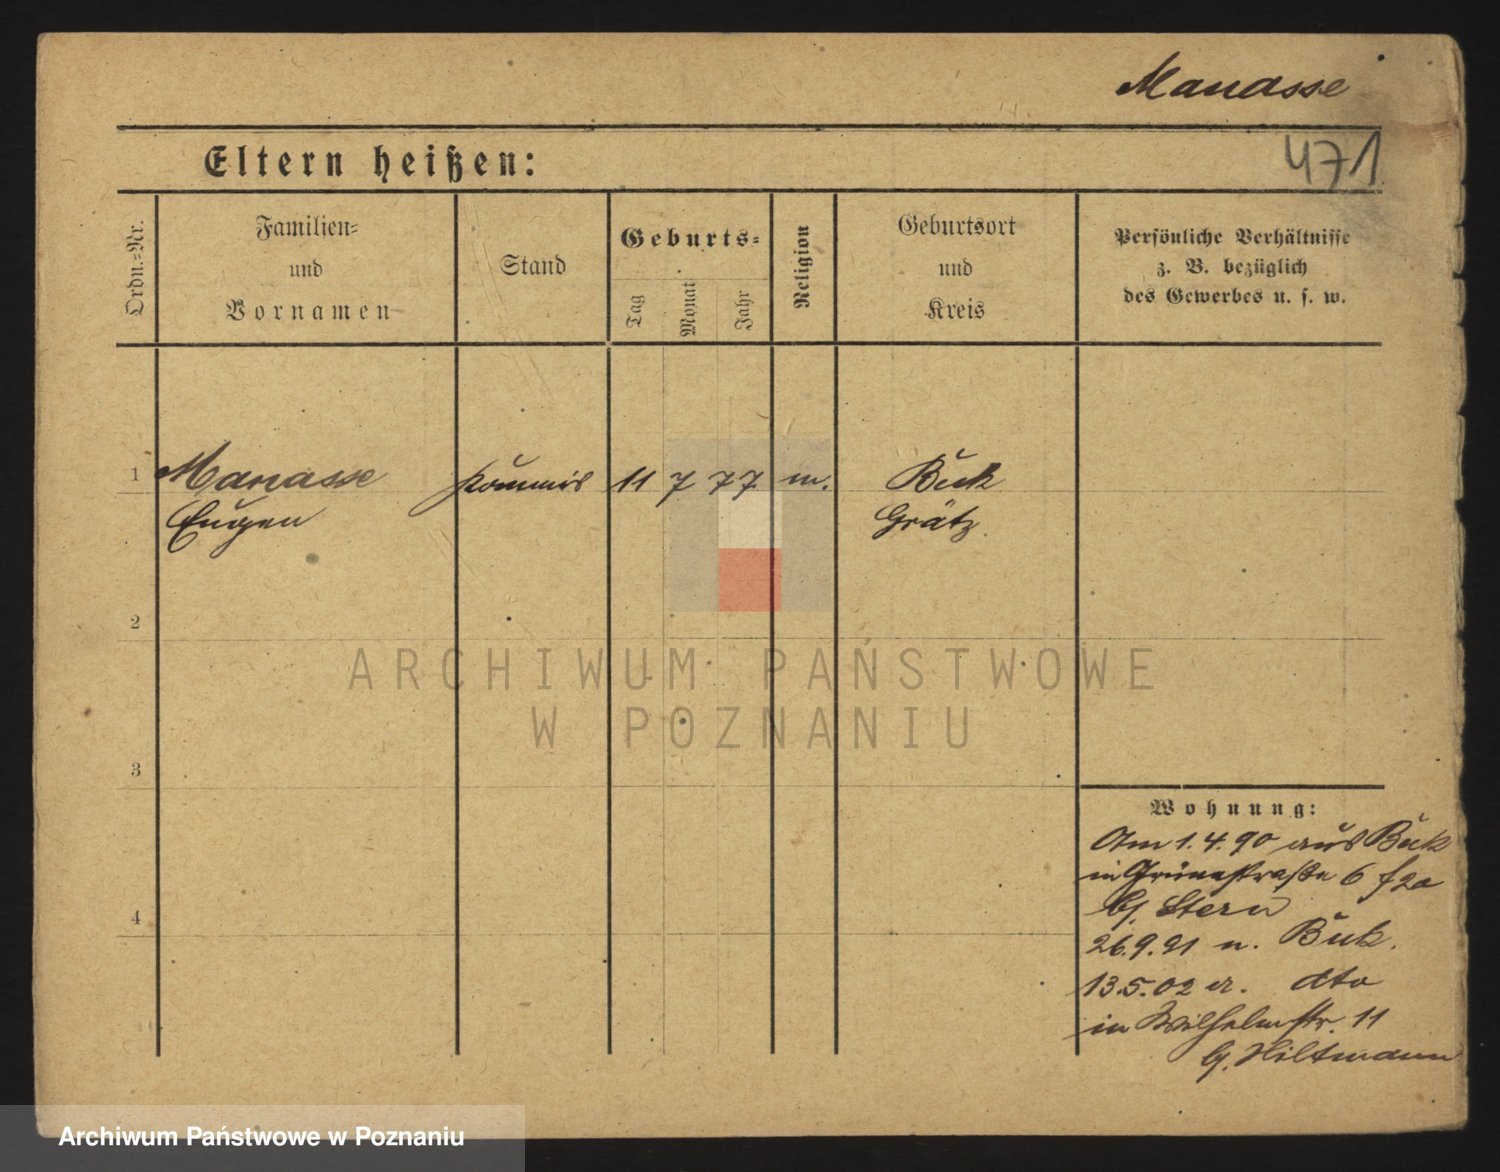 Manasse
Eltern heißen:
471
Ordn.=Nr.
Familien=
und
Vornamen
Stand
Geburts=
Tag
Monat
Jahr
Religion
Geburtsort
und
Kreis
Persönliche Verhältnisse
z. B. bezüglich
des Gewerbes u. s. w.
1
Manasse
Eugen
Kommis
11
7
77
m.
Buk
Grätz
2
ARCHIWUM PAŃSTWOWE
W POZNANIU
3
4
Wohnung:
Am 1.4.90 aus Buk
in Grünestraße 6
bj. Stern
26.9.91 n. Buk.
13.5.02 a. dto
in Wilhelmstr. 11
bj. Hiltmann
Archiwum Państwowe w Poznaniu